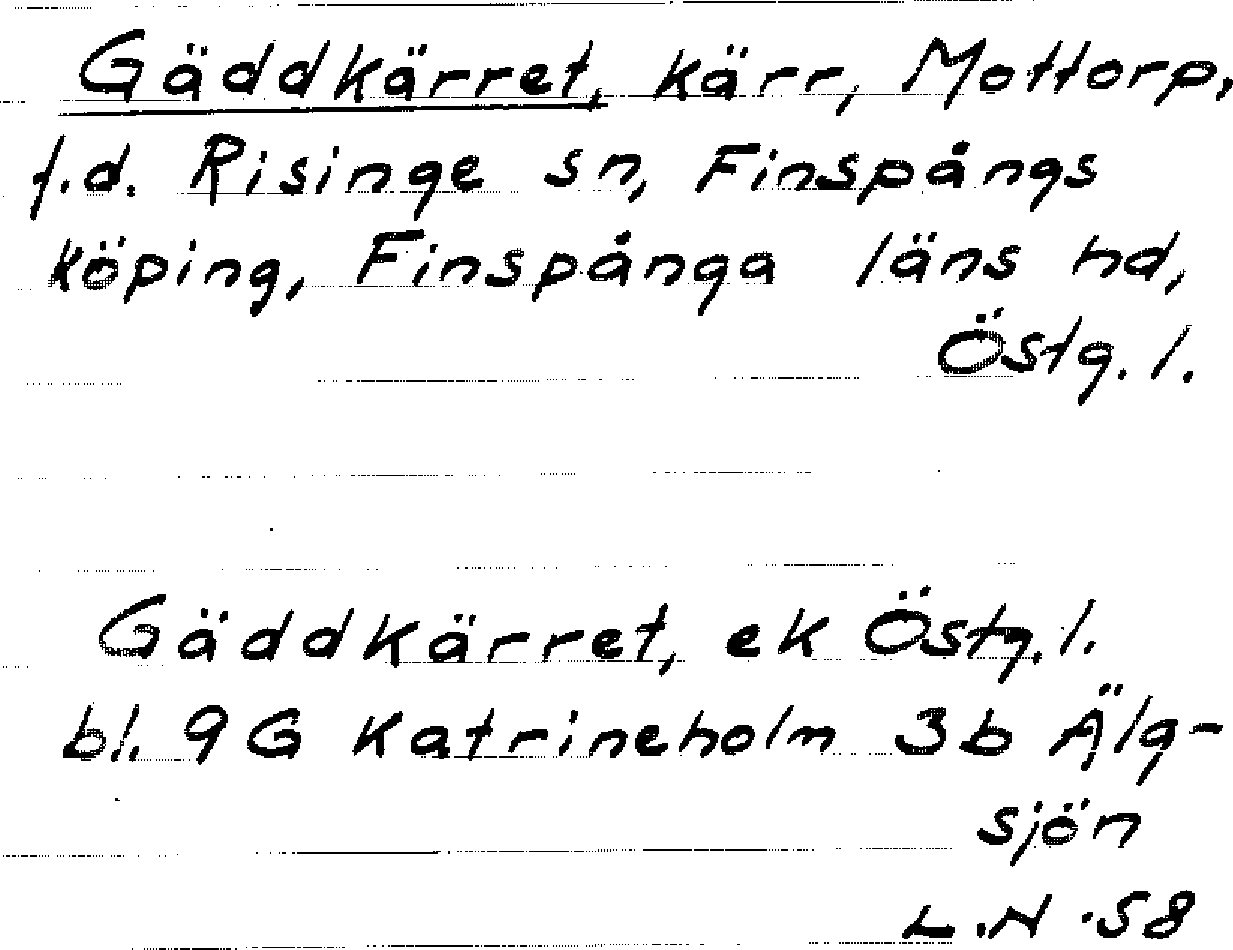 Gäddkärret, kärr, Mottorp,
f.d. Risinge sn, Finspångs
köping, Finspånga läns hd,
Östg. l.
Gäddkärret, ek Östg. l.
bl. 9G Katrineholm 3b Älg-
sjön
L.N.58